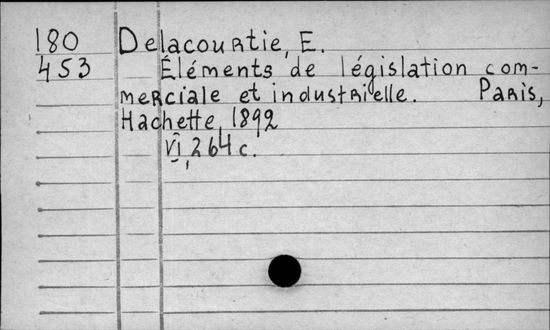 180 Delacourtie, E.
453 Éléments de législation com-
merciale et industrielle. Paris,
Hachette, 1892
VI, 264 c.